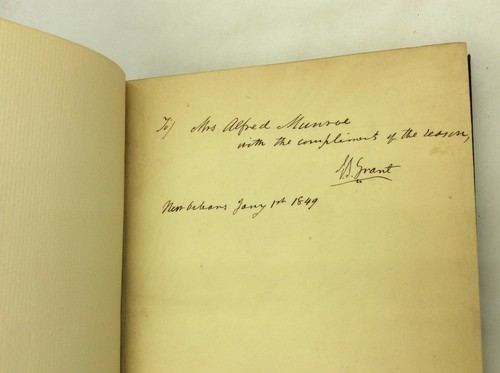 To/ Mrs Alfred Munroe
with the compliments of the season,
J.B. Grant
New Orleans Jany 1st 1849